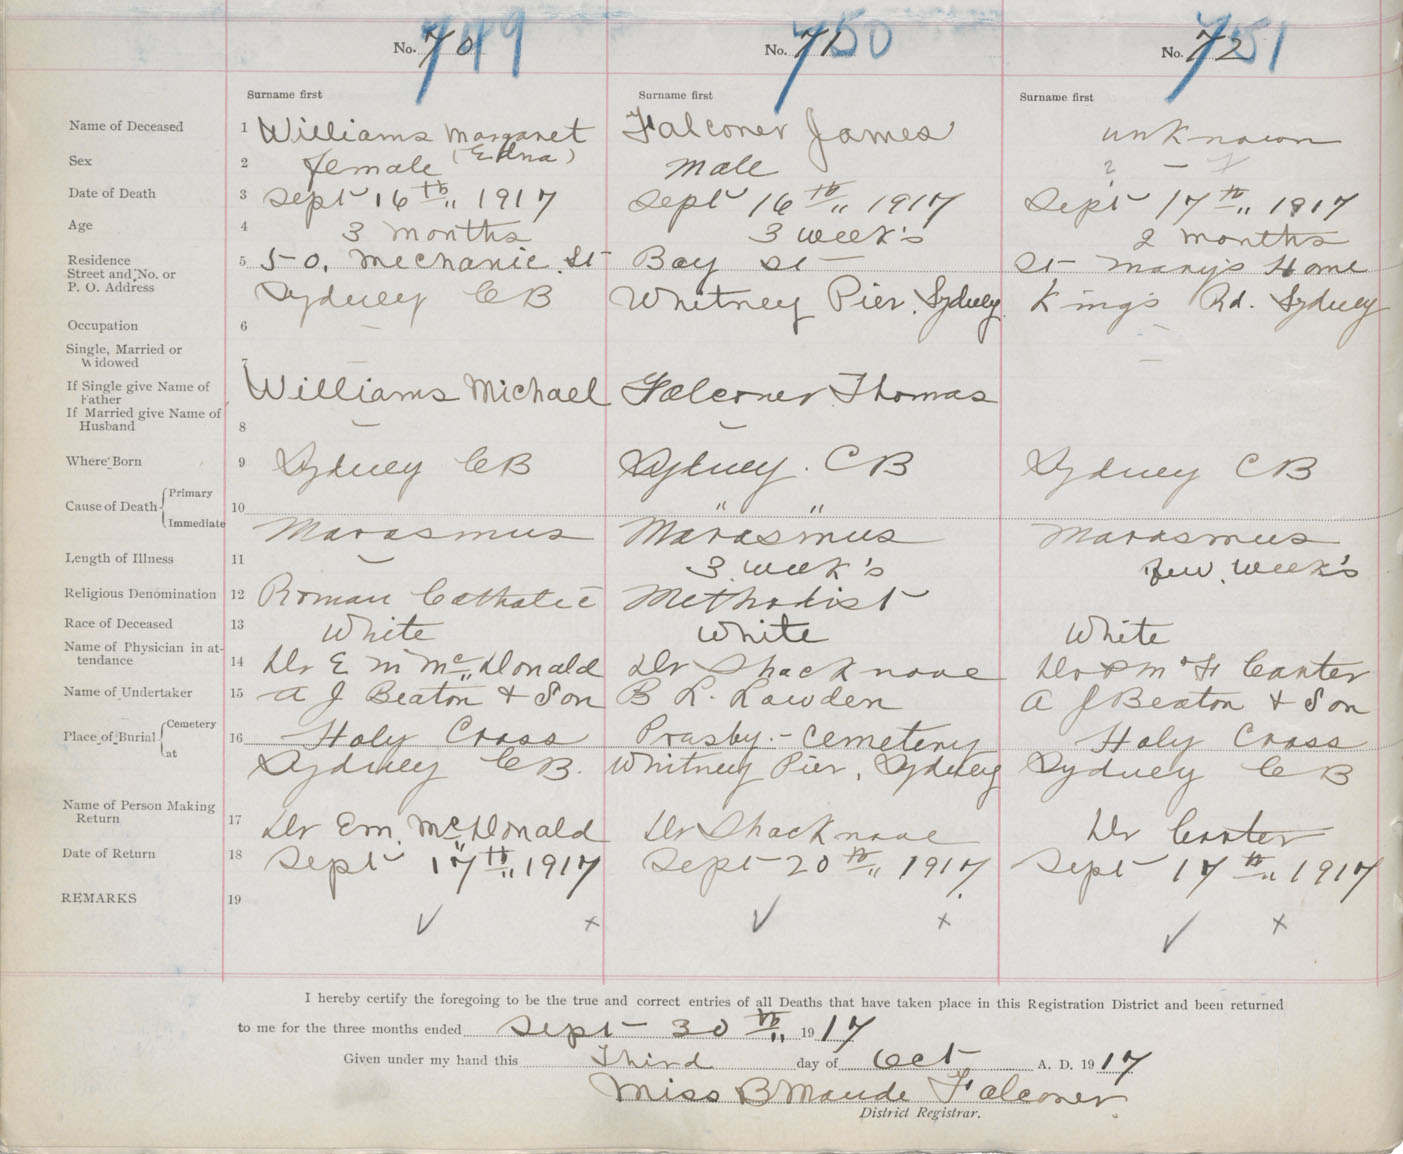 749 750 751
No. 70 No. 71 No. 72
Surname first Surname first Surname first
Name of Deceased 1 Williams Margaret Falconer James unKnown
(Edna)
Sex 2 female male ? —
Date of Death 3 Sept 16th 1917 Sept 16th 1917 Sept 17th 1917
Age 4 3 months 3 week's 2 months
Residence 5 50, Mechanic St Bay St St Mary's Home
Street and No. or
P. O. Address Sydney CB Whitney Pier, Sydney King's Rd. Sydney
Occupation 6 — —
Single, Married or
Widowed 7 — —
If Single give Name of
Father Williams Michael Falconer Thomas
If Married give Name of
Husband 8 — —
Where Born 9 Sydney CB Sydney. CB Sydney CB
Cause of Death { Primary 10 " "
Immediate Marasmus Marasmus Marasmus
Length of Illness 11 — 3 week's Few week's
Religious Denomination 12 Roman Catholic Methodist
Race of Deceased 13 White White White
Name of Physician in at-
tendance 14 Dr E M McDonald Dr Shacknove Dr Carter
Name of Undertaker 15 A J Beaton + Son B L. Lowden A J Beaton + Son
Place of Burial { Cemetery 16 Holy Cross Prasby.- Cemetery Holy Cross
at Sydney CB. Whitney Pier, Sydney Sydney CB
Name of Person Making
Return 17 Dr Em. McDonald Dr Shacknove Dr Carter
Date of Return 18 Sept 17th 1917 Sept 20th 1917 Sept 17th 1917
REMARKS 19
✓ x ✓ x ✓ x
I hereby certify the foregoing to be the true and correct entries of all Deaths that have taken place in this Registration District and been returned
to me for the three months ended Sept 30th 1917
Given under my hand this Third day of Oct A. D. 1917
Miss B Maude Falconer
District Registrar.